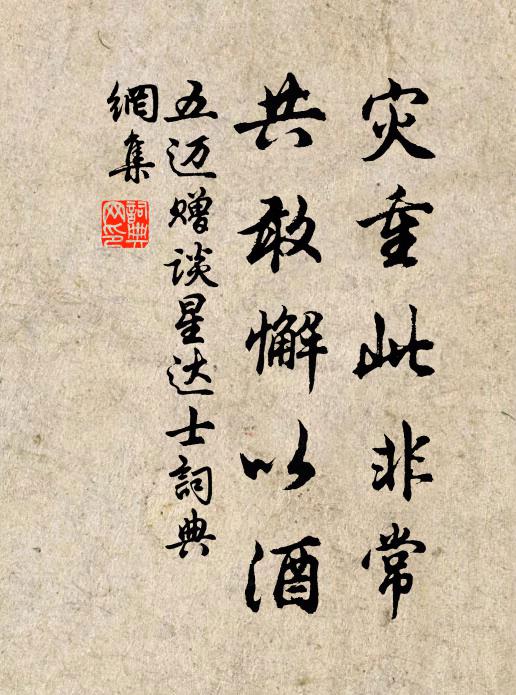 灾重此非常
共敢懈以酒
五迈赠谈星达士詞典
網集
詞典
网印